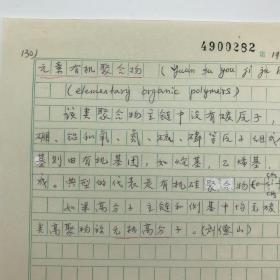 4900282 第 19
1301
元素有机聚合物 (Yuan su you ji ju h
(elementary organic polymers)
该类聚合物主链中没有碳原子，
硼、铝和氧、氮、硫、磷等原子组成
基则由有机基团，如烷基，乙烯基，
成。典型的代表是有机硅聚合物
如果高分子主链和侧基中均无碳
类高聚物谓无机高分子。(刘像山)